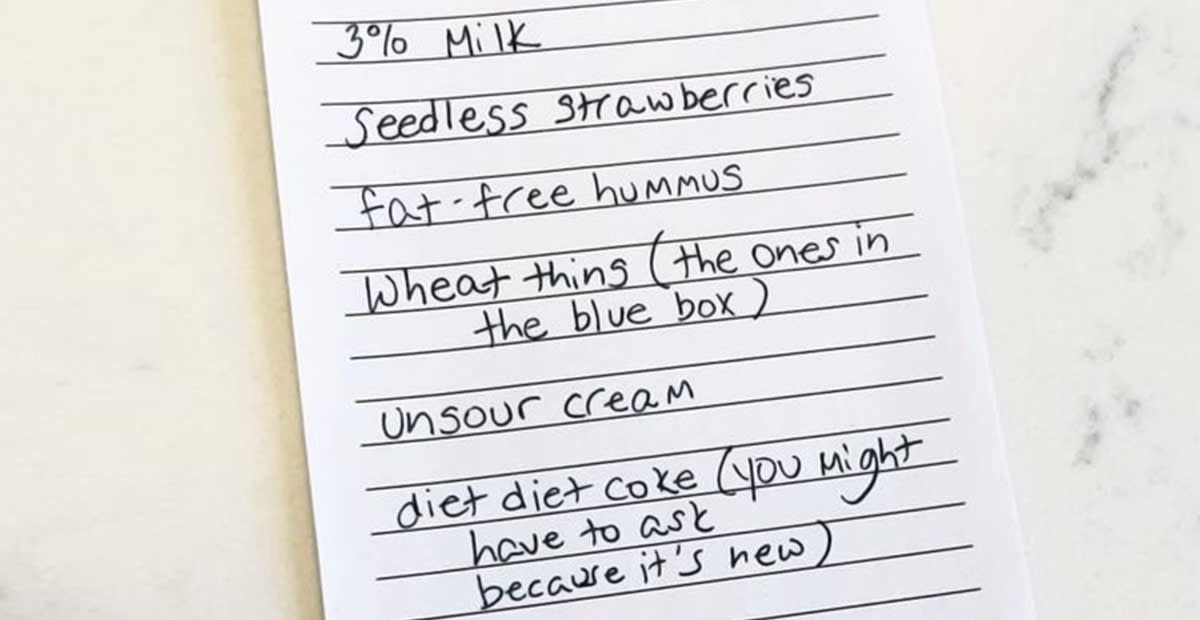 3% Milk
Seedless strawberries
fat-free hummus
Wheat thing (the ones in
the blue box)
unsour cream
diet diet coke (you might
have to ask
because it's new)